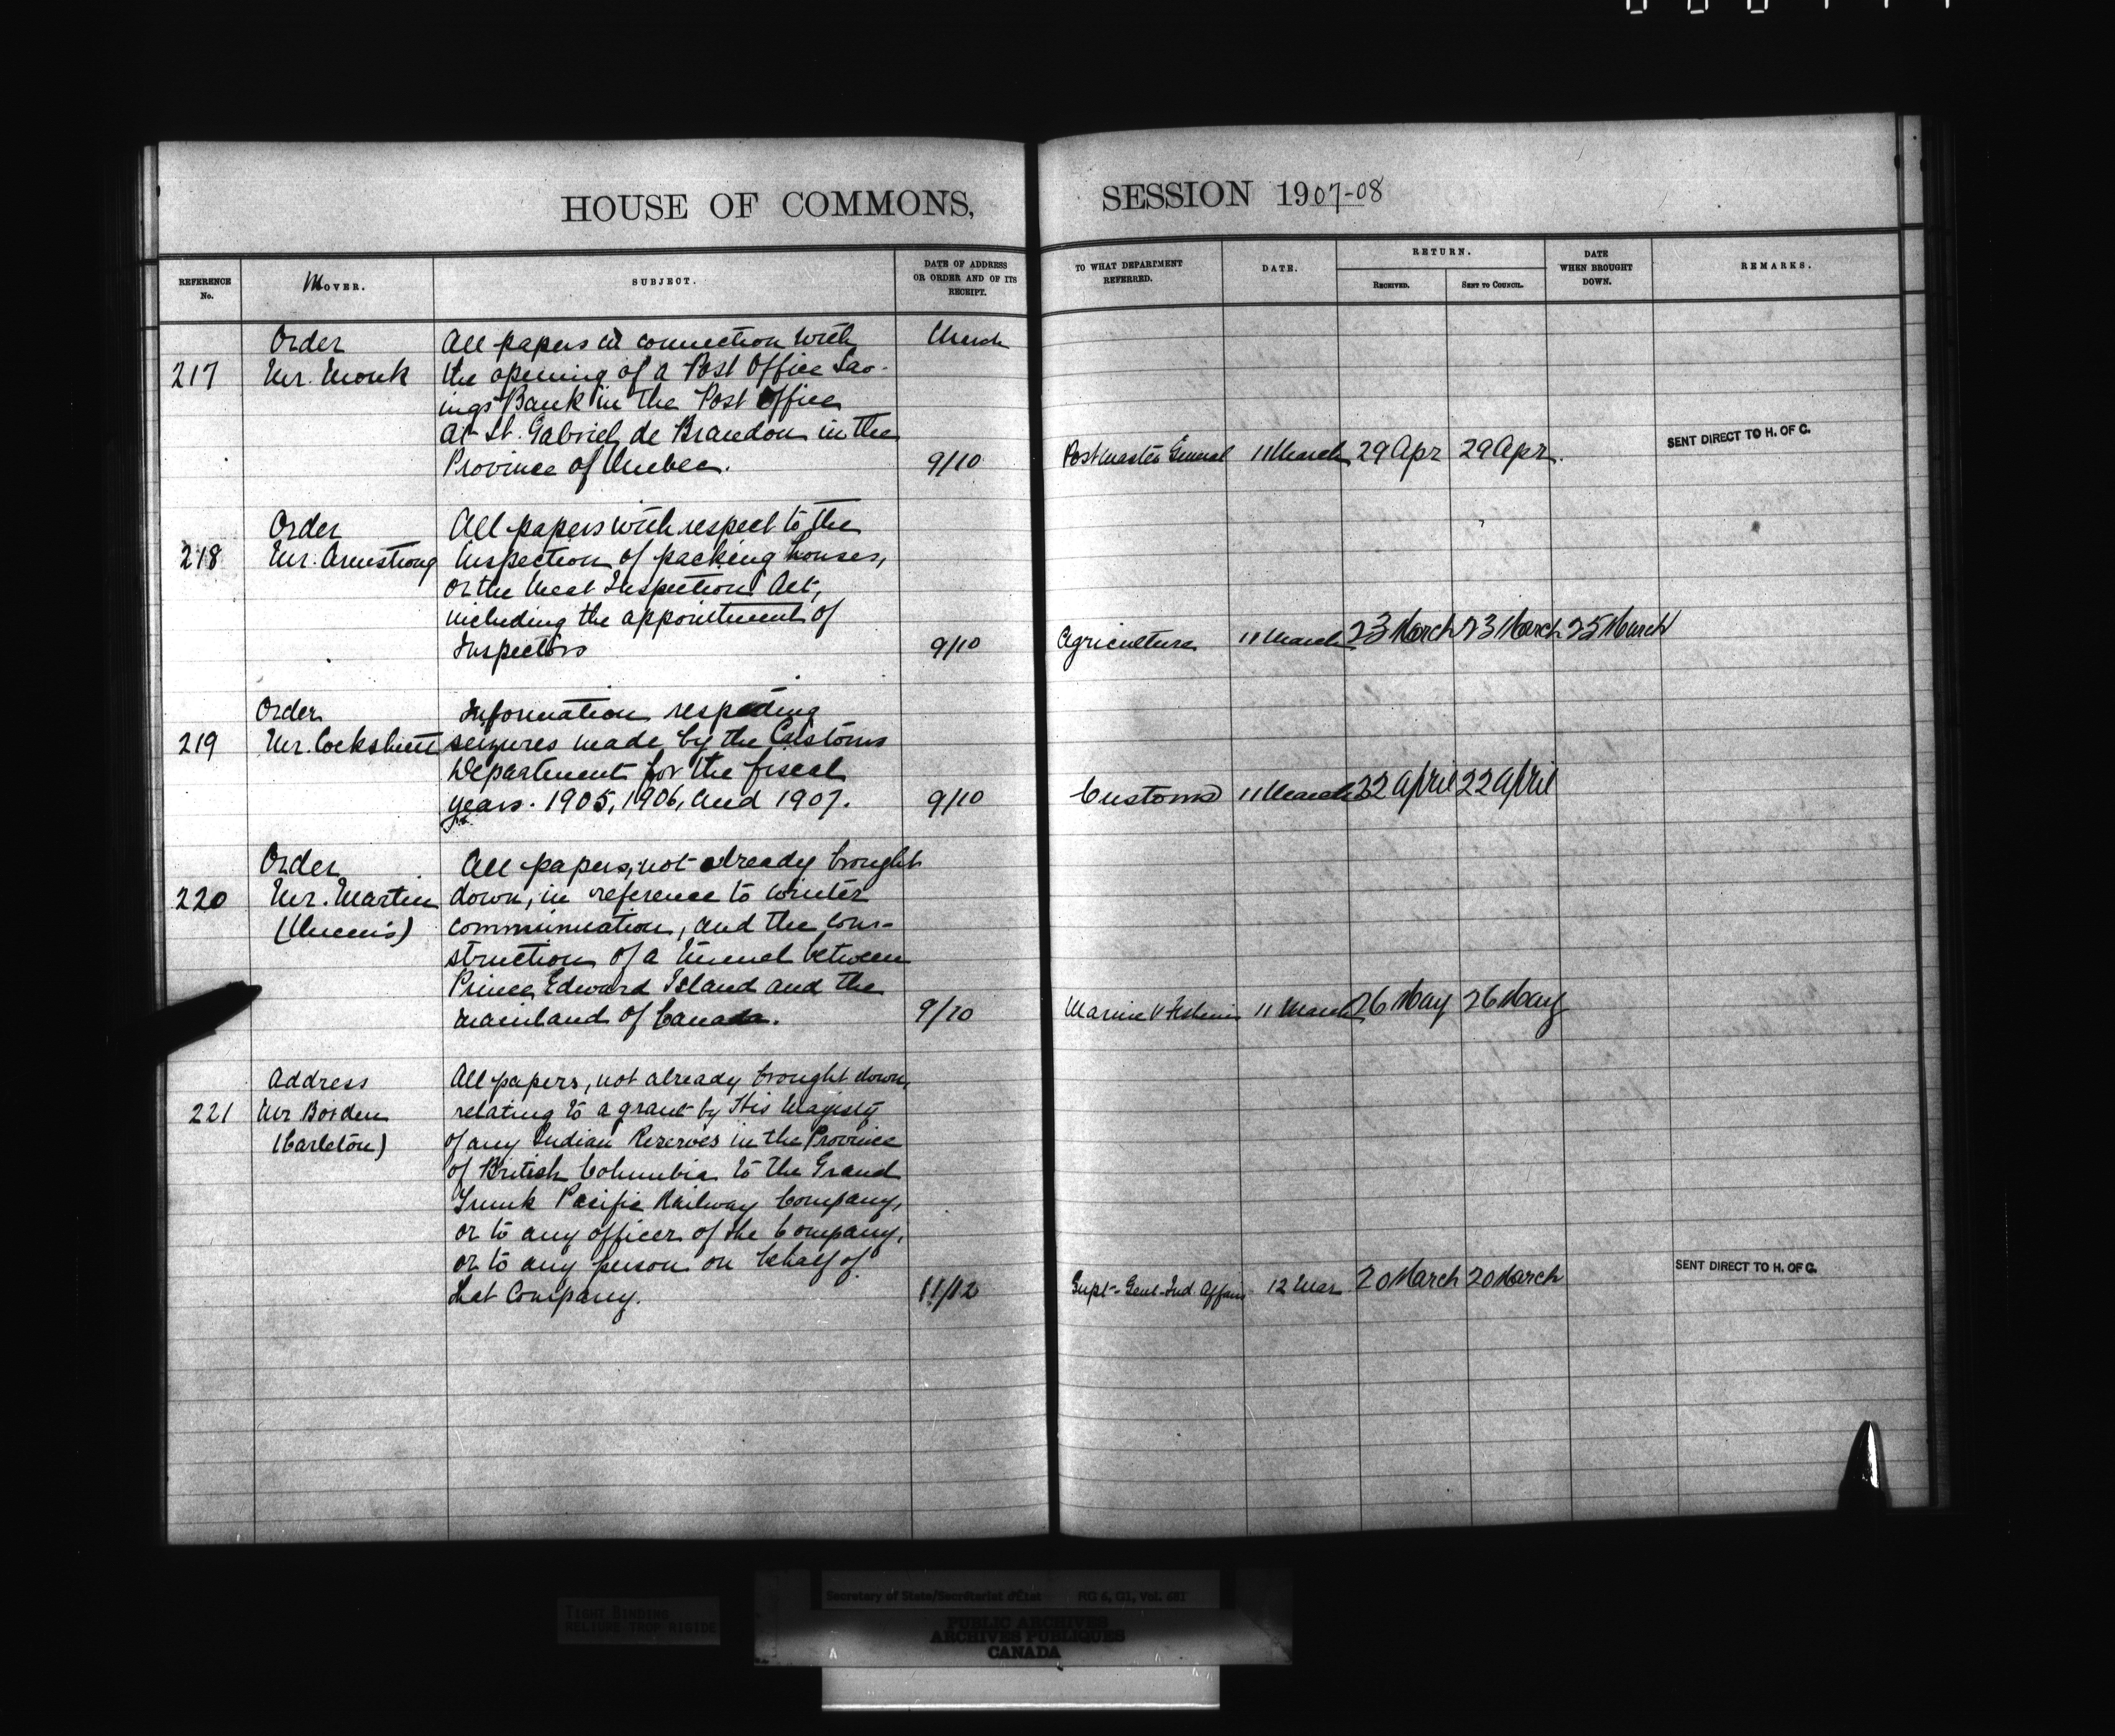 HOUSE OF COMMONS,
SESSION 1907-08
REFERENCE No.
MOVER.
SUBJECT.
DATE OF ADDRESS OR ORDER AND OF ITS RECEIPT.
TO WHAT DEPARTMENT REFERRED.
DATE.
RETURN.
RECEIVED.
SENT TO COUNCIL.
DATE WHEN BROUGHT DOWN.
REMARKS.
Order
All papers in connection with
March
217
Mr. Monk
the opening of a Post Office Sav-
ings Bank in the Post Office
at St. Gabriel de Brandon in the
Province of Quebec.
9/10
Postmaster General
11 March
29 Apr
29 Apr.
SENT DIRECT TO H. OF C.
Order
All papers with respect to the
218
Mr. Armstrong
Inspection of packing houses,
or the Meat Inspection Act,
including the appointment of
Inspectors
9/10
Agriculture
11 March
23 March
23 March
25 March
Order
Information respecting
219
Mr. Cockshutt
seizures made by the Customs
Department for the fiscal
years. 1905, 1906, and 1907.
9/10
Customs
11 March
22 April
22 April
Order
All papers, not already brought
220
Mr. Martin
down, in reference to winter
(Queens)
communication, and the con-
struction of a tunnel between
Prince Edward Island and the
mainland of Canada.
9/10
Marine & Fisheries
11 March
26 May
26 May
Address
All papers, not already brought down,
221
Mr Borden
relating to a grant by His Majesty
(Carleton)
of any Indian Reserves in the Province
of British Columbia to the Grand
Trunk Pacific Railway Company,
or to any officer of the Company,
or to any person on behalf of
that Company.
11/12
Supt-Genl-Ind Affairs
12 Mar
20 March
20 March
SENT DIRECT TO H. OF C.
TIGHT BINDING
RELIURE TROP RIGIDE
Secretary of State/Secrétariat d'État RG 6, G1, Vol. 681
PUBLIC ARCHIVES
ARCHIVES PUBLIQUES
CANADA